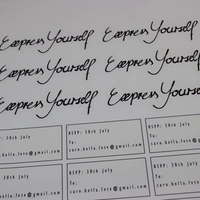 Express Yourself Express Yourself
Express Yourself Express Yourself
Express Yourself Express Yourself
RSVP: 18th july
To:
cara.bella.fere@gmail.com
RSVP: 18th july
To:
cara.bella.fere@gmail.com
18th july
@gmail.com
RSVP: 18th july
To:
cara.bella.fere@gmail.com
RSVP: 18th july
To:
cara.bella.fere